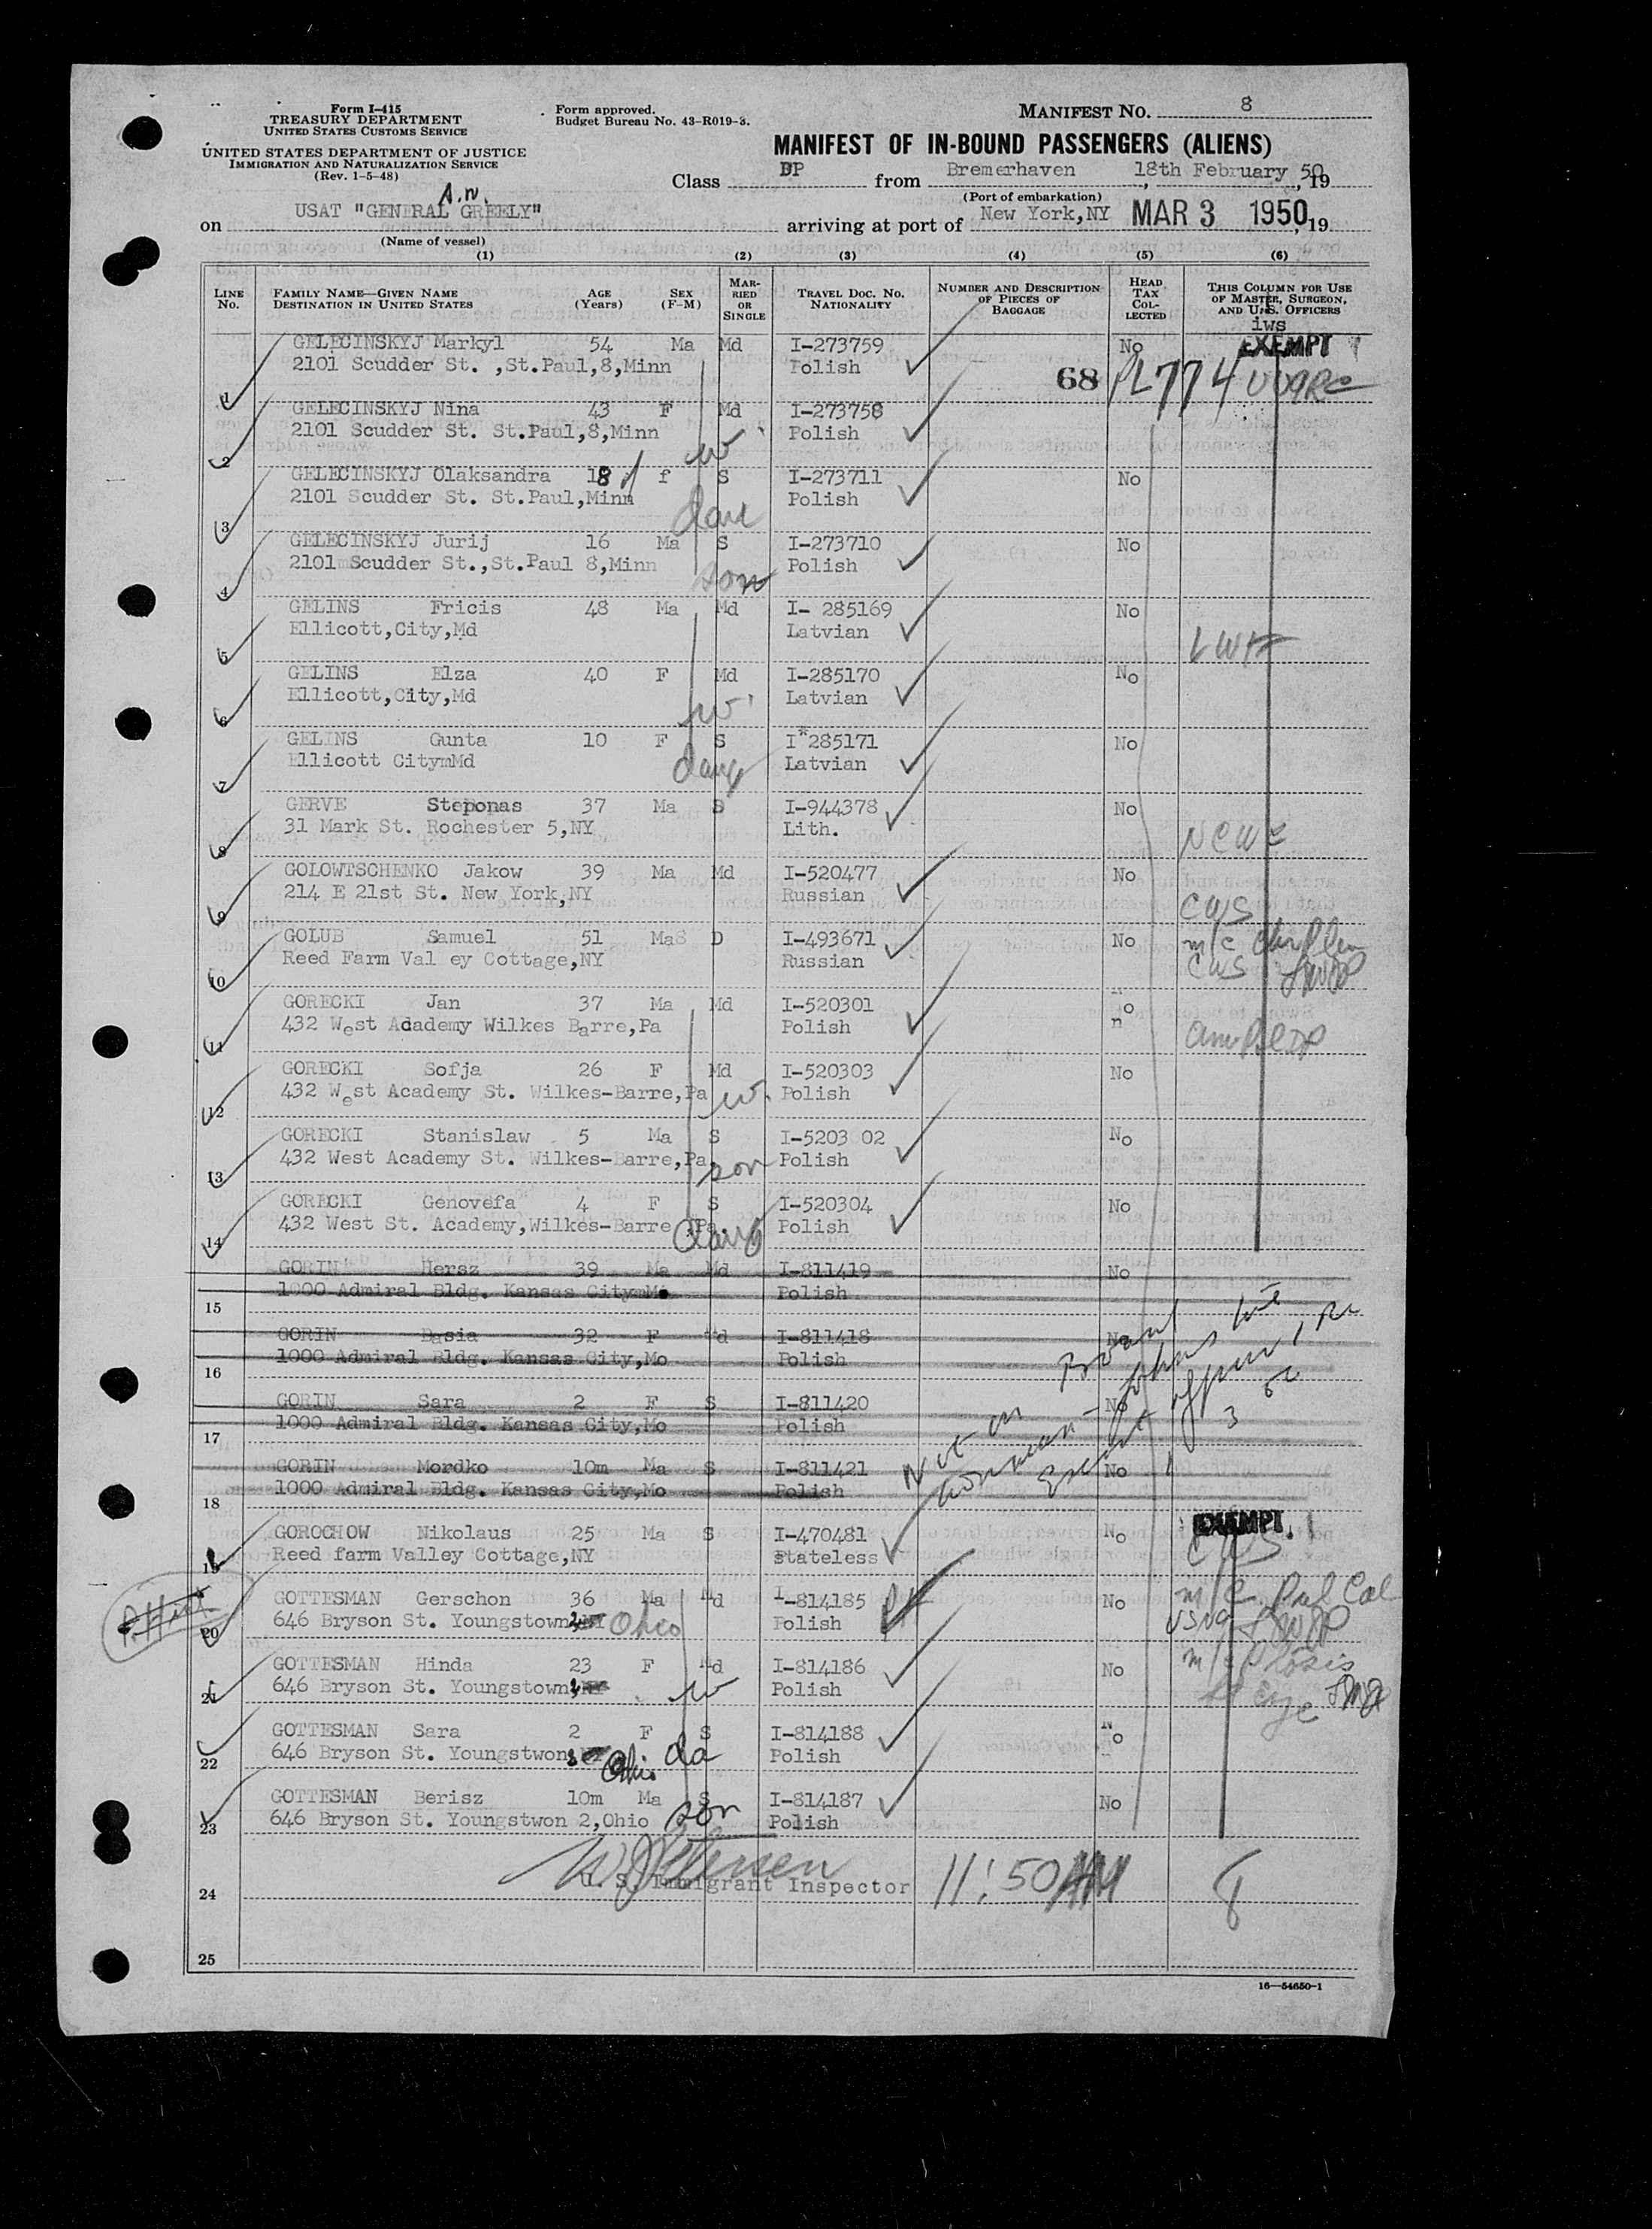 Form I-415
TREASURY DEPARTMENT
UNITED STATES CUSTOMS SERVICE
UNITED STATES DEPARTMENT OF JUSTICE
IMMIGRATION AND NATURALIZATION SERVICE
(Rev. 1-5-48)
Form approved.
Budget Bureau No. 43-R019-3.
MANIFEST NO. 8
MANIFEST OF IN-BOUND PASSENGERS (ALIENS)
Class DP from Bremerhaven, 18th February 50, 19
(Port of embarkation)
A.W.
on USAT "GENERAL GREELY" arriving at port of New York,NY MAR 3 1950, 19
(Name of vessel)
(1) (2) (3) (4) (5) (6)
LINE No. FAMILY NAME—GIVEN NAME DESTINATION IN UNITED STATES AGE (Years) SEX (F-M) MARRIED OR SINGLE TRAVEL DOC. NO. NATIONALITY NUMBER AND DESCRIPTION OF PIECES OF BAGGAGE HEAD TAX COLLECTED THIS COLUMN FOR USE OF MASTER, SURGEON, AND U.S. OFFICERS
iws
GELECINSKYJ Markyl 54 Ma Md I-273759 No EXEMPT
1 2101 Scudder St. ,St.Paul,8,Minn Polish 68 PL774
GELECINSKYJ Nina 43 F Md I-273758
2 2101 Scudder St. St.Paul,8,Minn w Polish
GELECINSKYJ Olaksandra 18 f S I-273711 No
3 2101 Scudder St. St.Paul,Minn dau Polish
GELECINSKYJ Jurij 16 Ma S I-273710 No
4 2101 Scudder St.,St.Paul 8,Minn son Polish
GELINS Fricis 48 Ma Md I- 285169 No
5 Ellicott,City,Md Latvian LWF
GELINS Elza 40 F Md I-285170 No
6 Ellicott,City,Md w Latvian
GELINS Gunta 10 F S I*285171 No
7 Ellicott CitymMd daug Latvian
GERVE Steponas 37 Ma S I-944378 No
8 31 Mark St. Rochester 5,NY Lith. NCWC
GOLOWTSCHENKO Jakow 39 Ma Md I-520477 No
9 214 E 21st St. New York,NY Russian CWS
GOLUB Samuel 51 MaS D I-493671 No m/c
10 Reed Farm Val ey Cottage,NY Russian CWS
GORECKI Jan 37 Ma Md I-520301 No
11 432 West Adademy Wilkes Barre,Pa Polish
GORECKI Sofja 26 F Md I-520303 No
12 432 West Academy St. Wilkes-Barre,Pa w. Polish
GORECKI Stanislaw 5 Ma S I-5203 02 No
13 432 West Academy St. Wilkes-Barre,Pa son Polish
GORECKI Genovefa 4 F S I-520304 No
14 432 West St. Academy,Wilkes-Barre Pa. daug Polish
GORIN Hersz 39 Ma Md I-811419 No
15 1000 Admiral Bldg. Kansas CitymMo Polish
GORIN Basia 32 F Md I-811418 No
16 1000 Admiral Bldg. Kansas City,Mo Polish
GORIN Sara 2 F S I-811420 No
17 1000 Admiral Bldg. Kansas City,Mo Polish
GORIN Mordko 10m Ma S I-811421 No
18 1000 Admiral Bldg. Kansas City,Mo Polish
Not on
GOROCHOW Nikolaus 25 Ma S I-470481 No EXEMPT
19 Reed farm Valley Cottage,NY Stateless CWS
GOTTESMAN Gerschon 36 Ma Md I-814185 No m/c
20 646 Bryson St. Youngstown Ohio Polish USNA
GOTTESMAN Hinda 23 F Md I-814186 No
21 646 Bryson St. Youngstown, w Polish eye
GOTTESMAN Sara 2 F S I-814188 No
22 646 Bryson St. Youngstwon Ohio da Polish
GOTTESMAN Berisz 10m Ma S I-814187 No
23 646 Bryson St. Youngstwon 2,Ohio son Polish
24 U. S. Immigrant Inspector 11:50AM 8
25
16—54650-1